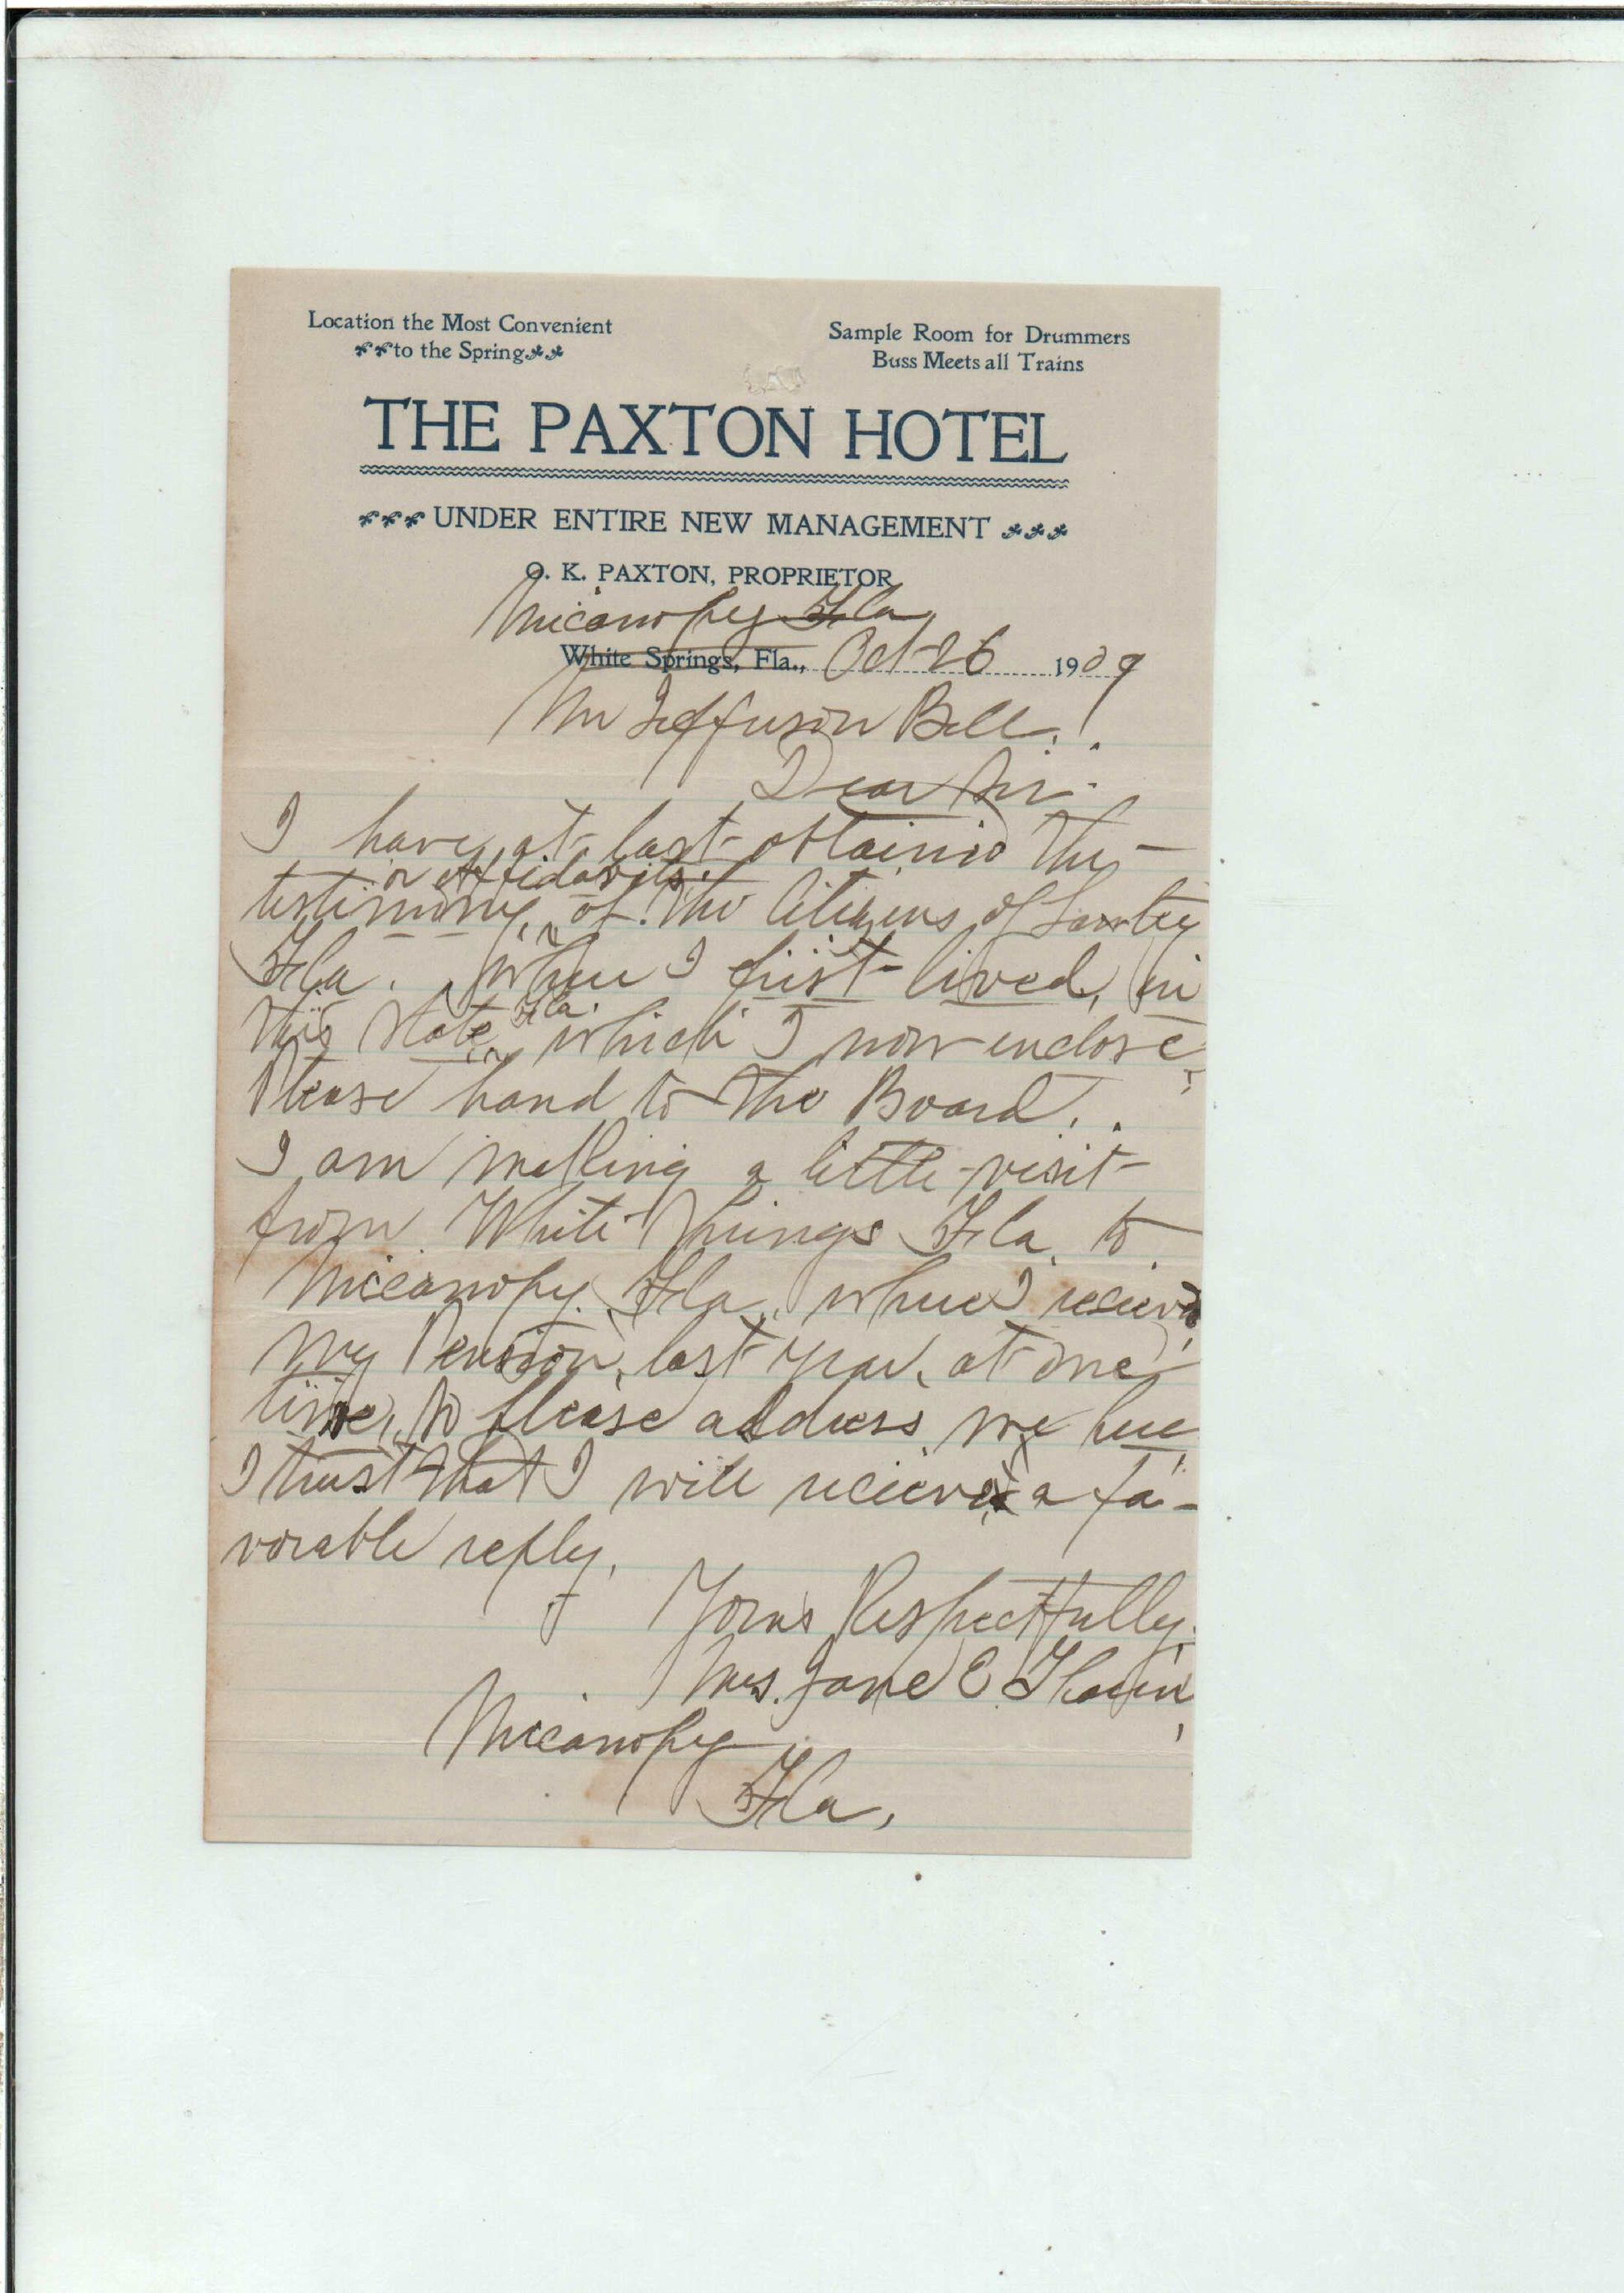 Location the Most Convenient
to the Spring
Sample Room for Drummers
Buss Meets all Trains
THE PAXTON HOTEL
UNDER ENTIRE NEW MANAGEMENT
O. K. PAXTON, PROPRIETOR
Micanopy Fla,
White Springs, Fla., Oct 26 1909
Mr Jefferson Bell.
Dear Sir.
I have at last obtained the
or Affidavits
testimony, of the Citizens of Lawtey
Fla. where I first lived, in
Fla.
this State, which I now enclose,
Please hand to the Board.
I am making a little visit
from White Springs Fla. to
Micanopy. Fla., where I recieved
my Pension, last year, at one
time, so please address me here,
I trust that I will recieve a fa-
vorable reply.
Yours Respectfully.
Mrs. Jane E
Micanopy
Fla,